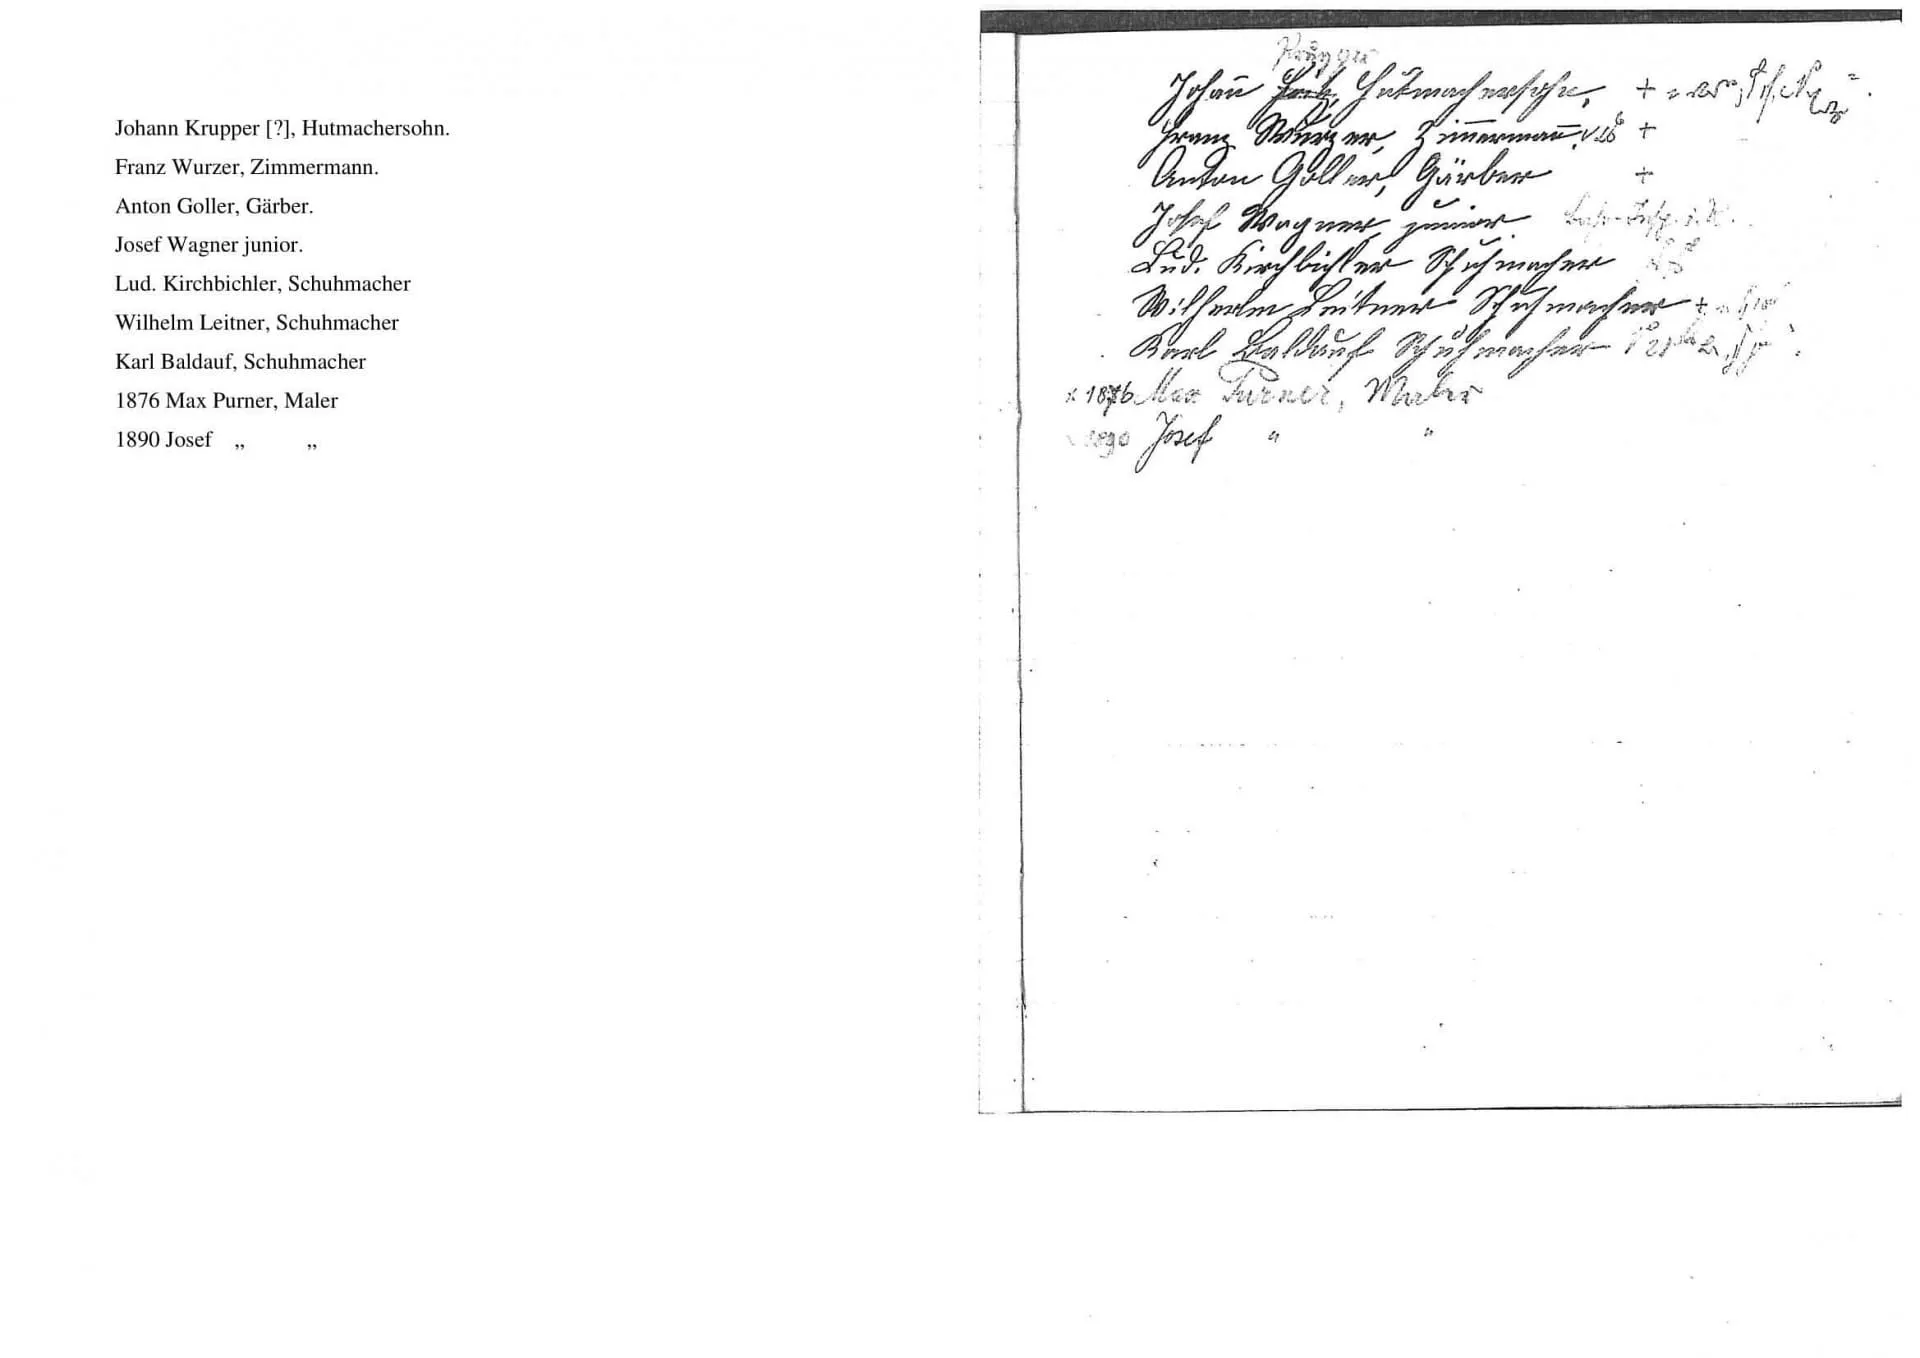 Johann Krupper [?], Hutmachersohn.
Franz Wurzer, Zimmermann.
Anton Goller, Gärber.
Josef Wagner junior.
Lud. Kirchbichler, Schuhmacher
Wilhelm Leitner, Schuhmacher
Karl Baldauf, Schuhmacher
1876 Max Purner, Maler
1890 Josef „ „
Johañ Hutmachersohn, +
Franz Wurzer, Zim̅ermañ, +
Anton Goller, Gärber +
Josef Wagner junior
Lud. Kirchbichler Schuhmacher
Wilhelm Leitner Schuhmacher +
Karl Baldauf Schuhmacher
1876 Max Purner, Maler
1890 Josef " "